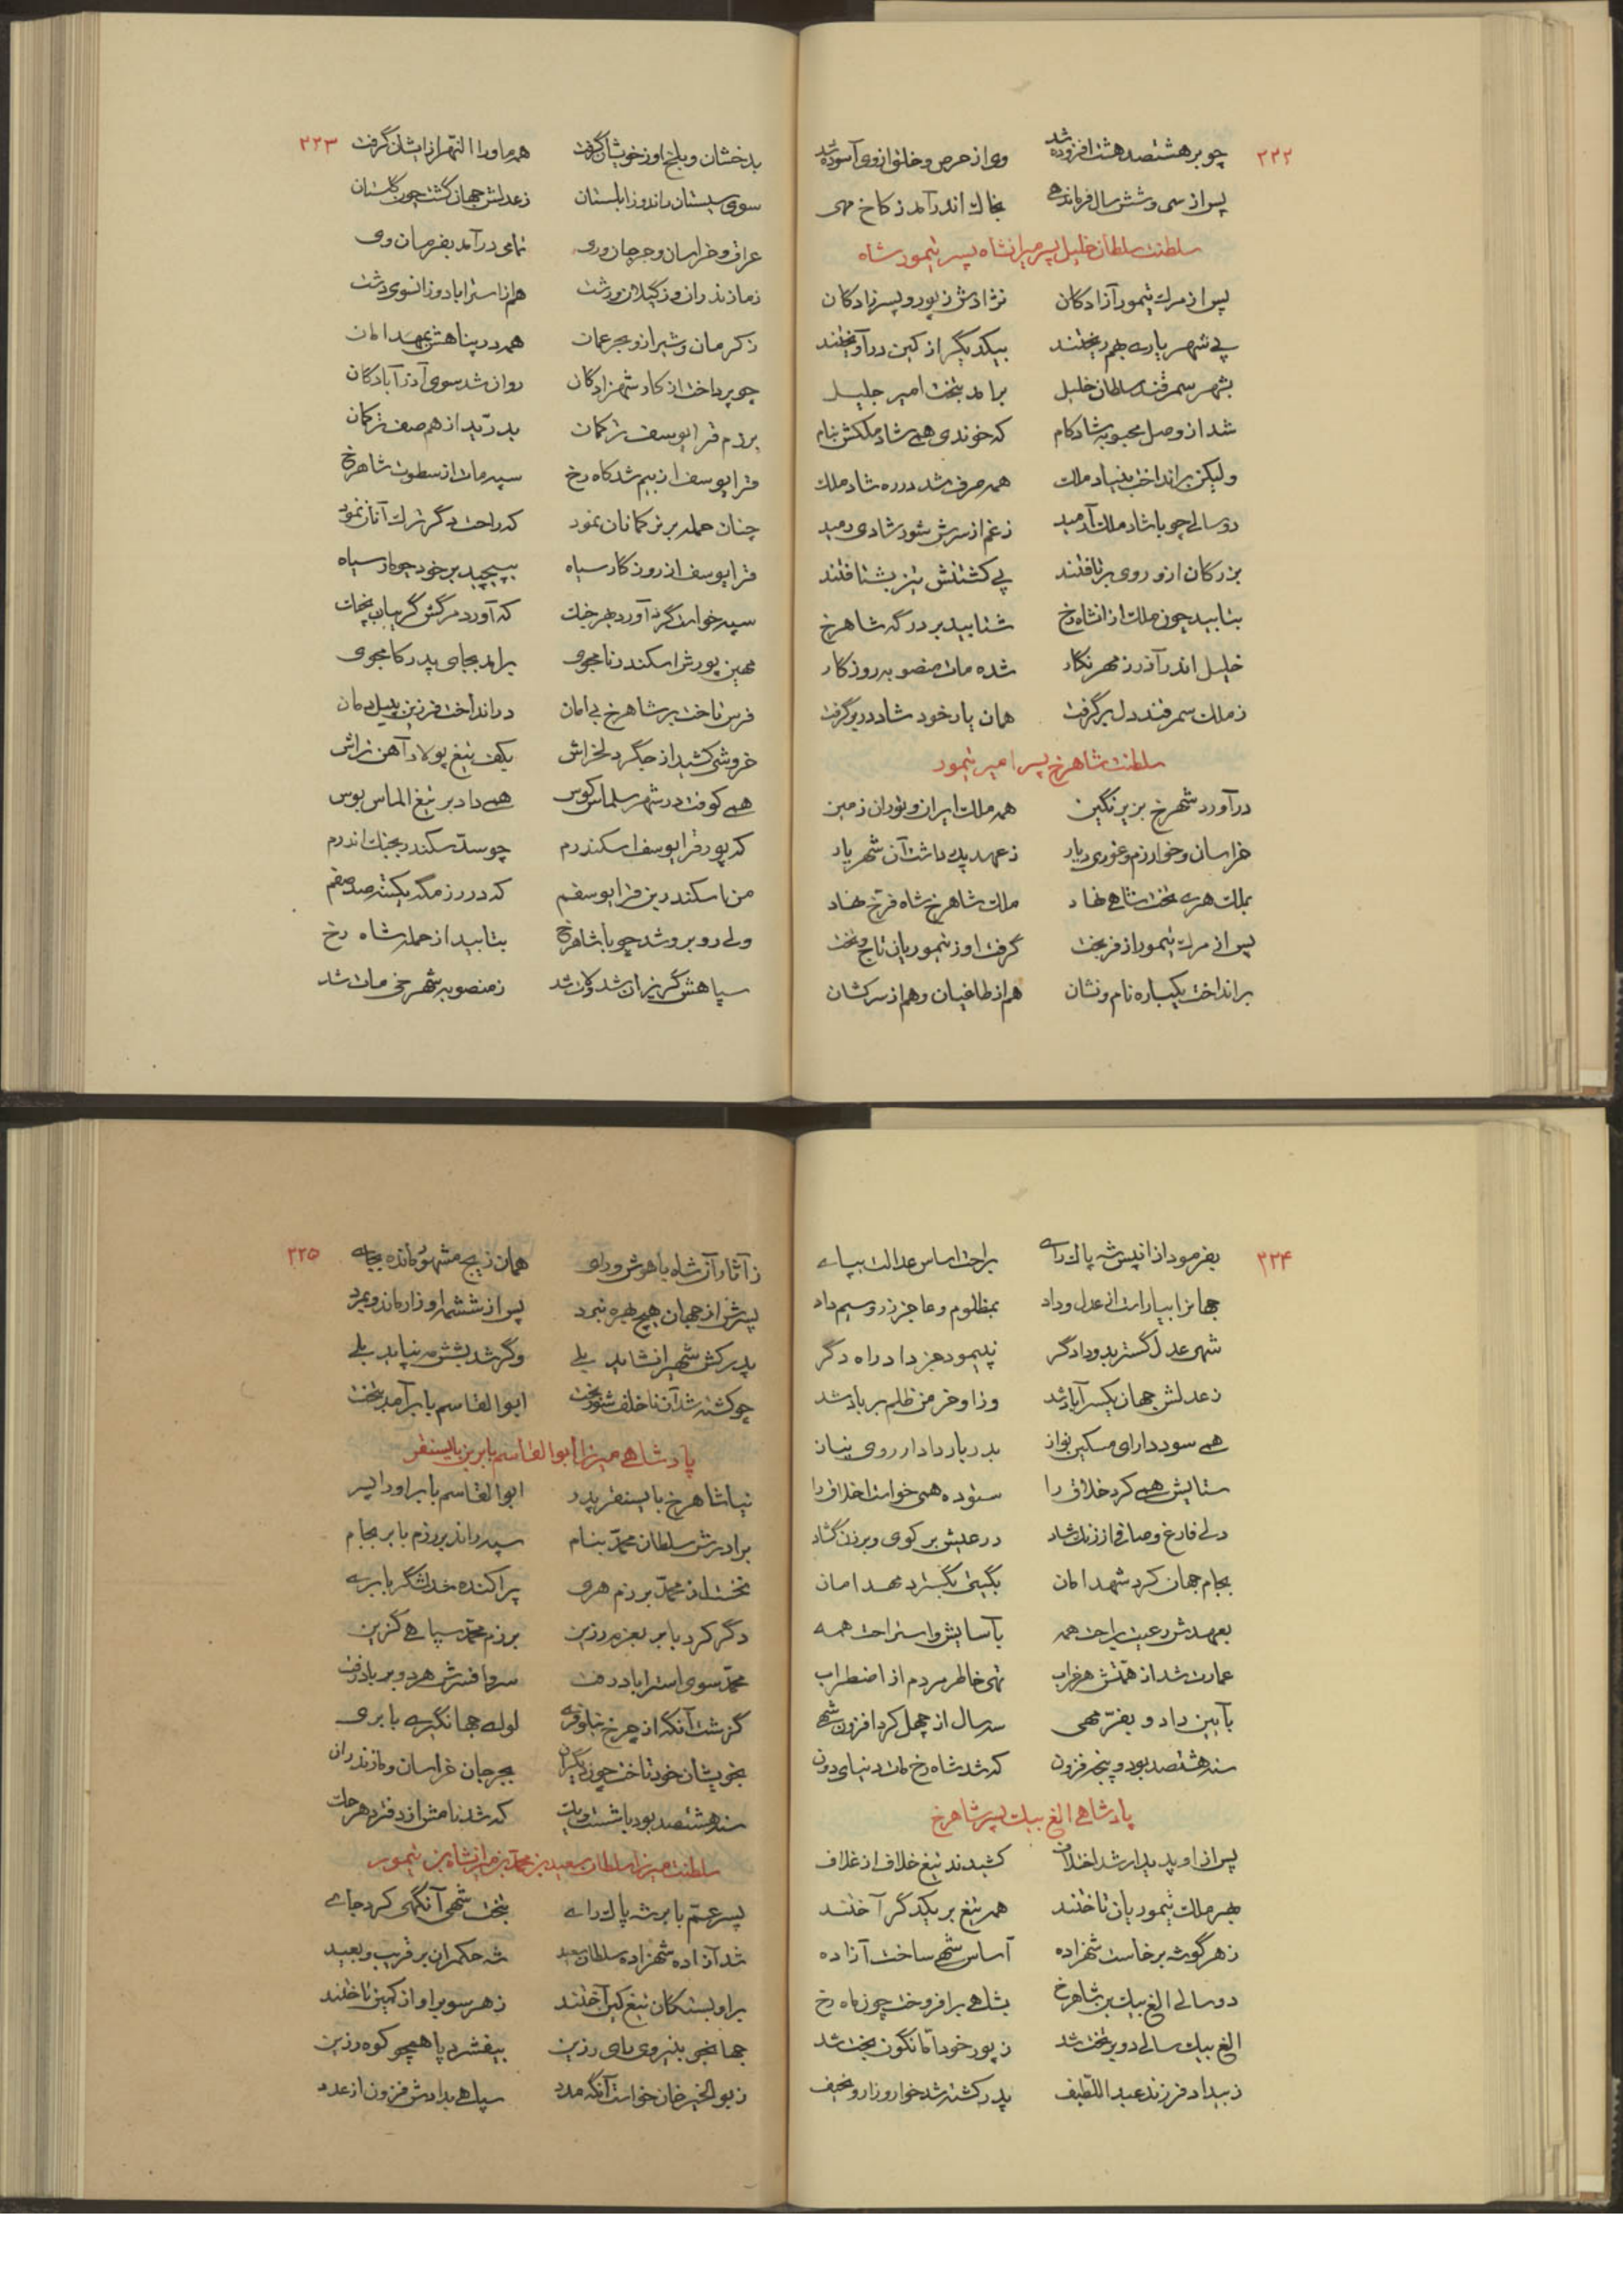 ۲۲۲
چو بر هشتصد هشت افزوده شد وی از حرص و خلق از وی آسوده شد
پس از سی و شش سال فرماندهی بخاک اندر آمد ز کاخ مهی
سلطنت سلطان خلیل پسر میرانشاه پسر تیمور شاه
پس از مرک تیمور آزادکان نژادش ز پور و پسرزادکان
پی شهریاری بهم ریختند بیکدیگر از کین درآویختند
بشهر سمرقند سلطان خلیل برامد بتخت امیر جلیل
شد از وصل محبوبه شادکام که خوندی همی شاد ملکش بنام
ولیکن برانداخت بنیاد ملک همه صرف شد در ره شاد ملک
دو سالی چو با شاد ملک آرمید ز غم از سرش شور شادی رمید
بزرکان ازو روی برتافتند پی کشتنش تیز بشتافتند
بتابید چون ملک از انشاه رخ شتابید بر درگه شاهرخ
خلیل اندر آذر ز مهر نکار شده مات منصوبه روزکار
ز ملک سمرقند دل برگرفت همان یار خود شاد در بر گرفت
سلطنت شاهرخ پسر امیر تیمور
درآورد شهرخ بزیر نگین همه ملک ایران و توران زمین
خراسان و خوارزم و غوری دیار ز عهد پدر داشت آن شهریار
بملک هری تخت شاهی نهاد ملک شاهرخ شاه فرخ نهاد
پس از مرک تیمور از فر بخت گرفت او ز تیموریان تاج و تخت
برانداخت یکباره نام و نشان هم از طاغیان و هم از سرکشان
۲۲۳
بدخشان و بلخ او ز خویشان گرفت همه ماوراالنهر از ایشان گرفت
سوی سیستان راند و زابلستان ز عدلش جهان گشت چون گلستان
عراق و خراسان و جرجان و ری تمامی درآمد بفرمان وی
ز مازندران و ز گیلان و رشت هم از استراباد وز انسوی دشت
ز کرمان و شیراز و بحر عمان همه در پناهش بمهد امان
چو پرداخت از کار شهزادکان روان شد سوی آذرآبادکان
برزم قرا یوسف ترکمان بدرّید از هم صف ترکمان
قرا یوسف از بیم شد کاه رخ سیه مات از سطوت شاهرخ
چنان حمله بر ترکمانان نمود که راحت دگر ترک آنان نمود
قرا یوسف از روزکار سیاه بپیچید بر خود چو مار سیاه
سپه خواست گرد آورد بهر جنک که آورد مرکش گریبان بچنک
مهین پورش اسکندر نامجوی برامد بجای پدر کامجوی
فرس تاخت بر شاهرخ بی امان درانداخت فرزین بپیل دمان
خروشی کشید از جگر دلخراش بکف تیغ پولاد آهن تراش
همی کوفت در شهر سلماس کوس همی داد بر تیغ الماس بوس
که پور قرا یوسف اسکندرم چو سدّ سکندر بجنک اندرم
من اسکندر بن قرا یوسفم که در رزمگه یکتنه صد صفم
ولی روبرو شد چو با شاهرخ بتابید از حمله شاه رخ
سپاهش گریزان شد و لات شد ز منصوبه شهرخی مات شد
۲۲۴
بفرمود از انپس شه پاک رای براحت اساس عدالت بپای
جهانرا بیاراست از عدل و داد بمظلوم و عاجز زر و سیم داد
شهی عدل گستر بد و دادگر نپیمود جز داد راه دگر
ز عدلش جهان یکسر آباد شد وز او خرمن ظلم بر باد شد
همی سود دارای مسکین نواز بدربار دادار روی نیاز
ستایش همی کرد خلاق را ستوده همی خواست اخلاق را
دلی فارغ و صافی از زنک شاد در عیش بر کوی و برزن گشاد
بجام جهان کرد شهد امان بگیتی بگسترد مهد امان
بعهدش رعیت براحت همه بآسایش و استراحت همه
عمارت شد از همّتش هر خراب تهی خاطر مردم از اضطراب
بآیین داد و بفرّ مهی سه سال از چهل کرد افزون شهی
سنه هشتصد بود و پنجه فزون که شد شاه رخ مات دنیای دون
پادشاهی الغ بیک پسر شاهرخ
پس از او پدیدار شد اختلاف کشیدند تیغ خلاف از غلاف
بهر ملک تیموریان تاختند همه تیغ بر یکدگر آختند
ز هر گوشه برخاست شهزاده اساس شهی ساخت آزاده
دو سالی الغ بیک بن شاهرخ بشاهی برافروخت چون ماه رخ
الغ بیک سالی دو بر تخت شد ز پور خود امّا نگون بخت شد
ز بیداد فرزند عبد اللّطیف پدر کشته شد خوار و زار و نحیف
۲۲۵
ز آثار آن شاه با هوش و رای همان زیج مشهور مانده بجای
پسرش از جهان هیچ بهره نبرد پس از شش مه او زار ماند و بمرد
پدر کش شهی را نشاید بلی وگر شد بشش مه نپاید بلی
چو کشته شد آن ناخلف شوربخت ابوالقاسم بابر آمد بتخت
پادشاهی میرزا ابوالقاسم بابر بن بایسنقر
نیا شاهرخ بایسنقر پدر ابوالقاسم بابر او را پسر
برادرش سلطان محمّد بنام سپه راند بر رزم بابر بجام
نخست از محمّد برزم هری پراکنده شد لشگر بابری
دگر کرد بابر بعزم رزین برزم محمّد سپاهی گزین
محمّد سوی استراباد رفت سر و افسرش هر دو بر باد رفت
گزشت آنگه از چرخ نیلوفری لوای جهانگیری بابری
بخویشان خود تاخت چون دیگران بجرجان خراسان و مازندران
سنه هشتصد بود با شست و یک که شد نامش از دفتر دهر حک
سلطنت میرزا سلطان سعید بن محمّد بن میرانشاه بن تیمور
پسر عمّ بابر شه پاک رای بتخت شهی آنگهی کرد جای
شد آزاده شهزاده سلطان سعید شه حکمران بر قریب و بعید
بر او بستکان تیغ کین آختند ز هر سو بر او از کمین تاختند
جهانجوی بنیروی رای رزین بیفشرد پا همچو کوه رزین
ز بوالخیر خان خواست آنگه مدد سپاهی بدادش فزون از عدد